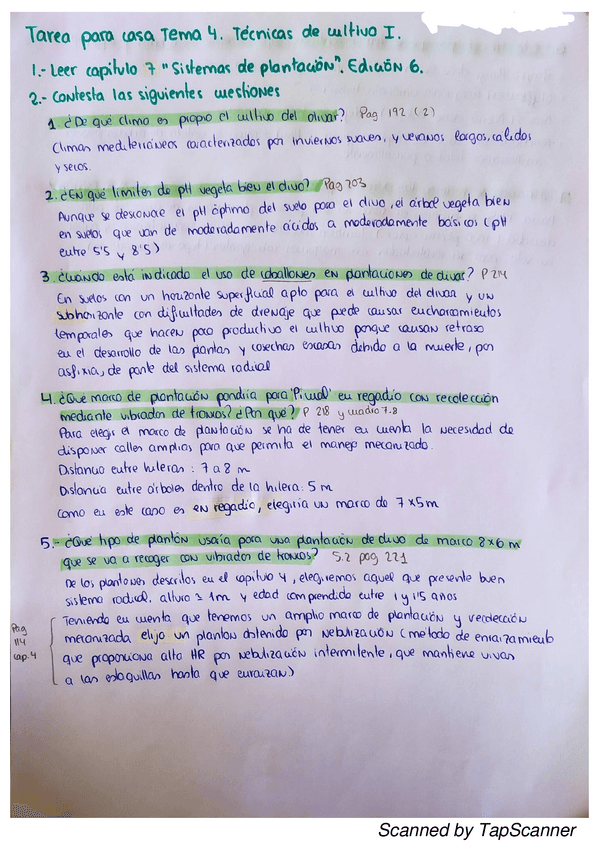 Tarea para casa Tema 4. Técnicas de cultivo I.
1.- Leer capítulo 7 "Sistemas de plantación". Edición 6.
2.- Contesta las siguientes cuestiones
1 ¿De qué clima es propio el cultivo del olivar? Pag 192 (2)
Climas mediterráneos caracterizados por inviernos suaves, y veranos largos, calidos
y secos.
2. ¿En qué límites de pH vegeta bien el olivo? Pag 203
Aunque se desconoce el pH óptimo del suelo para el olivo, el árbol vegeta bien
en suelos que van de moderadamente ácidos a moderadamente básicos (pH
entre 5'5 y 8'5)
3. ¿Cuándo está indicado el uso de caballones en plantaciones de olivar? P 214
En suelos con un horizonte superficial apto para el cultivo del olivar y un
subhorizonte con dificultades de drenaje que puede causar encharcamientos
temporales que hacen poco productivo el cultivo porque causan retraso
en el desarrollo de las plantas y cosechas escasas debido a la muerte, por
asfixia, de parte del sistema radical
4. ¿Qué marco de plantación pondría para 'Picual' en regadío con recolección
mediante vibrador de troncos? ¿Por qué? P 218 y cuadro 7.8
Para elegir el marco de plantación se ha de tener en cuenta la necesidad de
disponer calles amplias para que permita el manejo mecanizado.
Distancia entre hileras: 7 a 8 m
Distancia entre árboles dentro de la hilera: 5 m
Como en este caso es en regadío, elegiría un marco de 7x5m
5.- ¿Qué tipo de plantón usaría para una plantación de olivo de marco 8x6 m
que se va a recoger con vibrador de troncos? 5.2 pag 221
De los plantones descritos en el capítulo 4, elegiremos aquel que presente buen
sistema radical, altura ≥ 1m y edad comprendida entre 1 y 1'5 años
Pag
114
cap. 4
Teniendo en cuenta que tenemos un amplio marco de plantación y recolección
mecanizada elijo un plantón obtenido por nebulización (método de enraizamiento
que proporciona alta HR por nebulización intermitente, que mantiene vivas
a las estaquillas hasta que enraízan)
Scanned by TapScanner